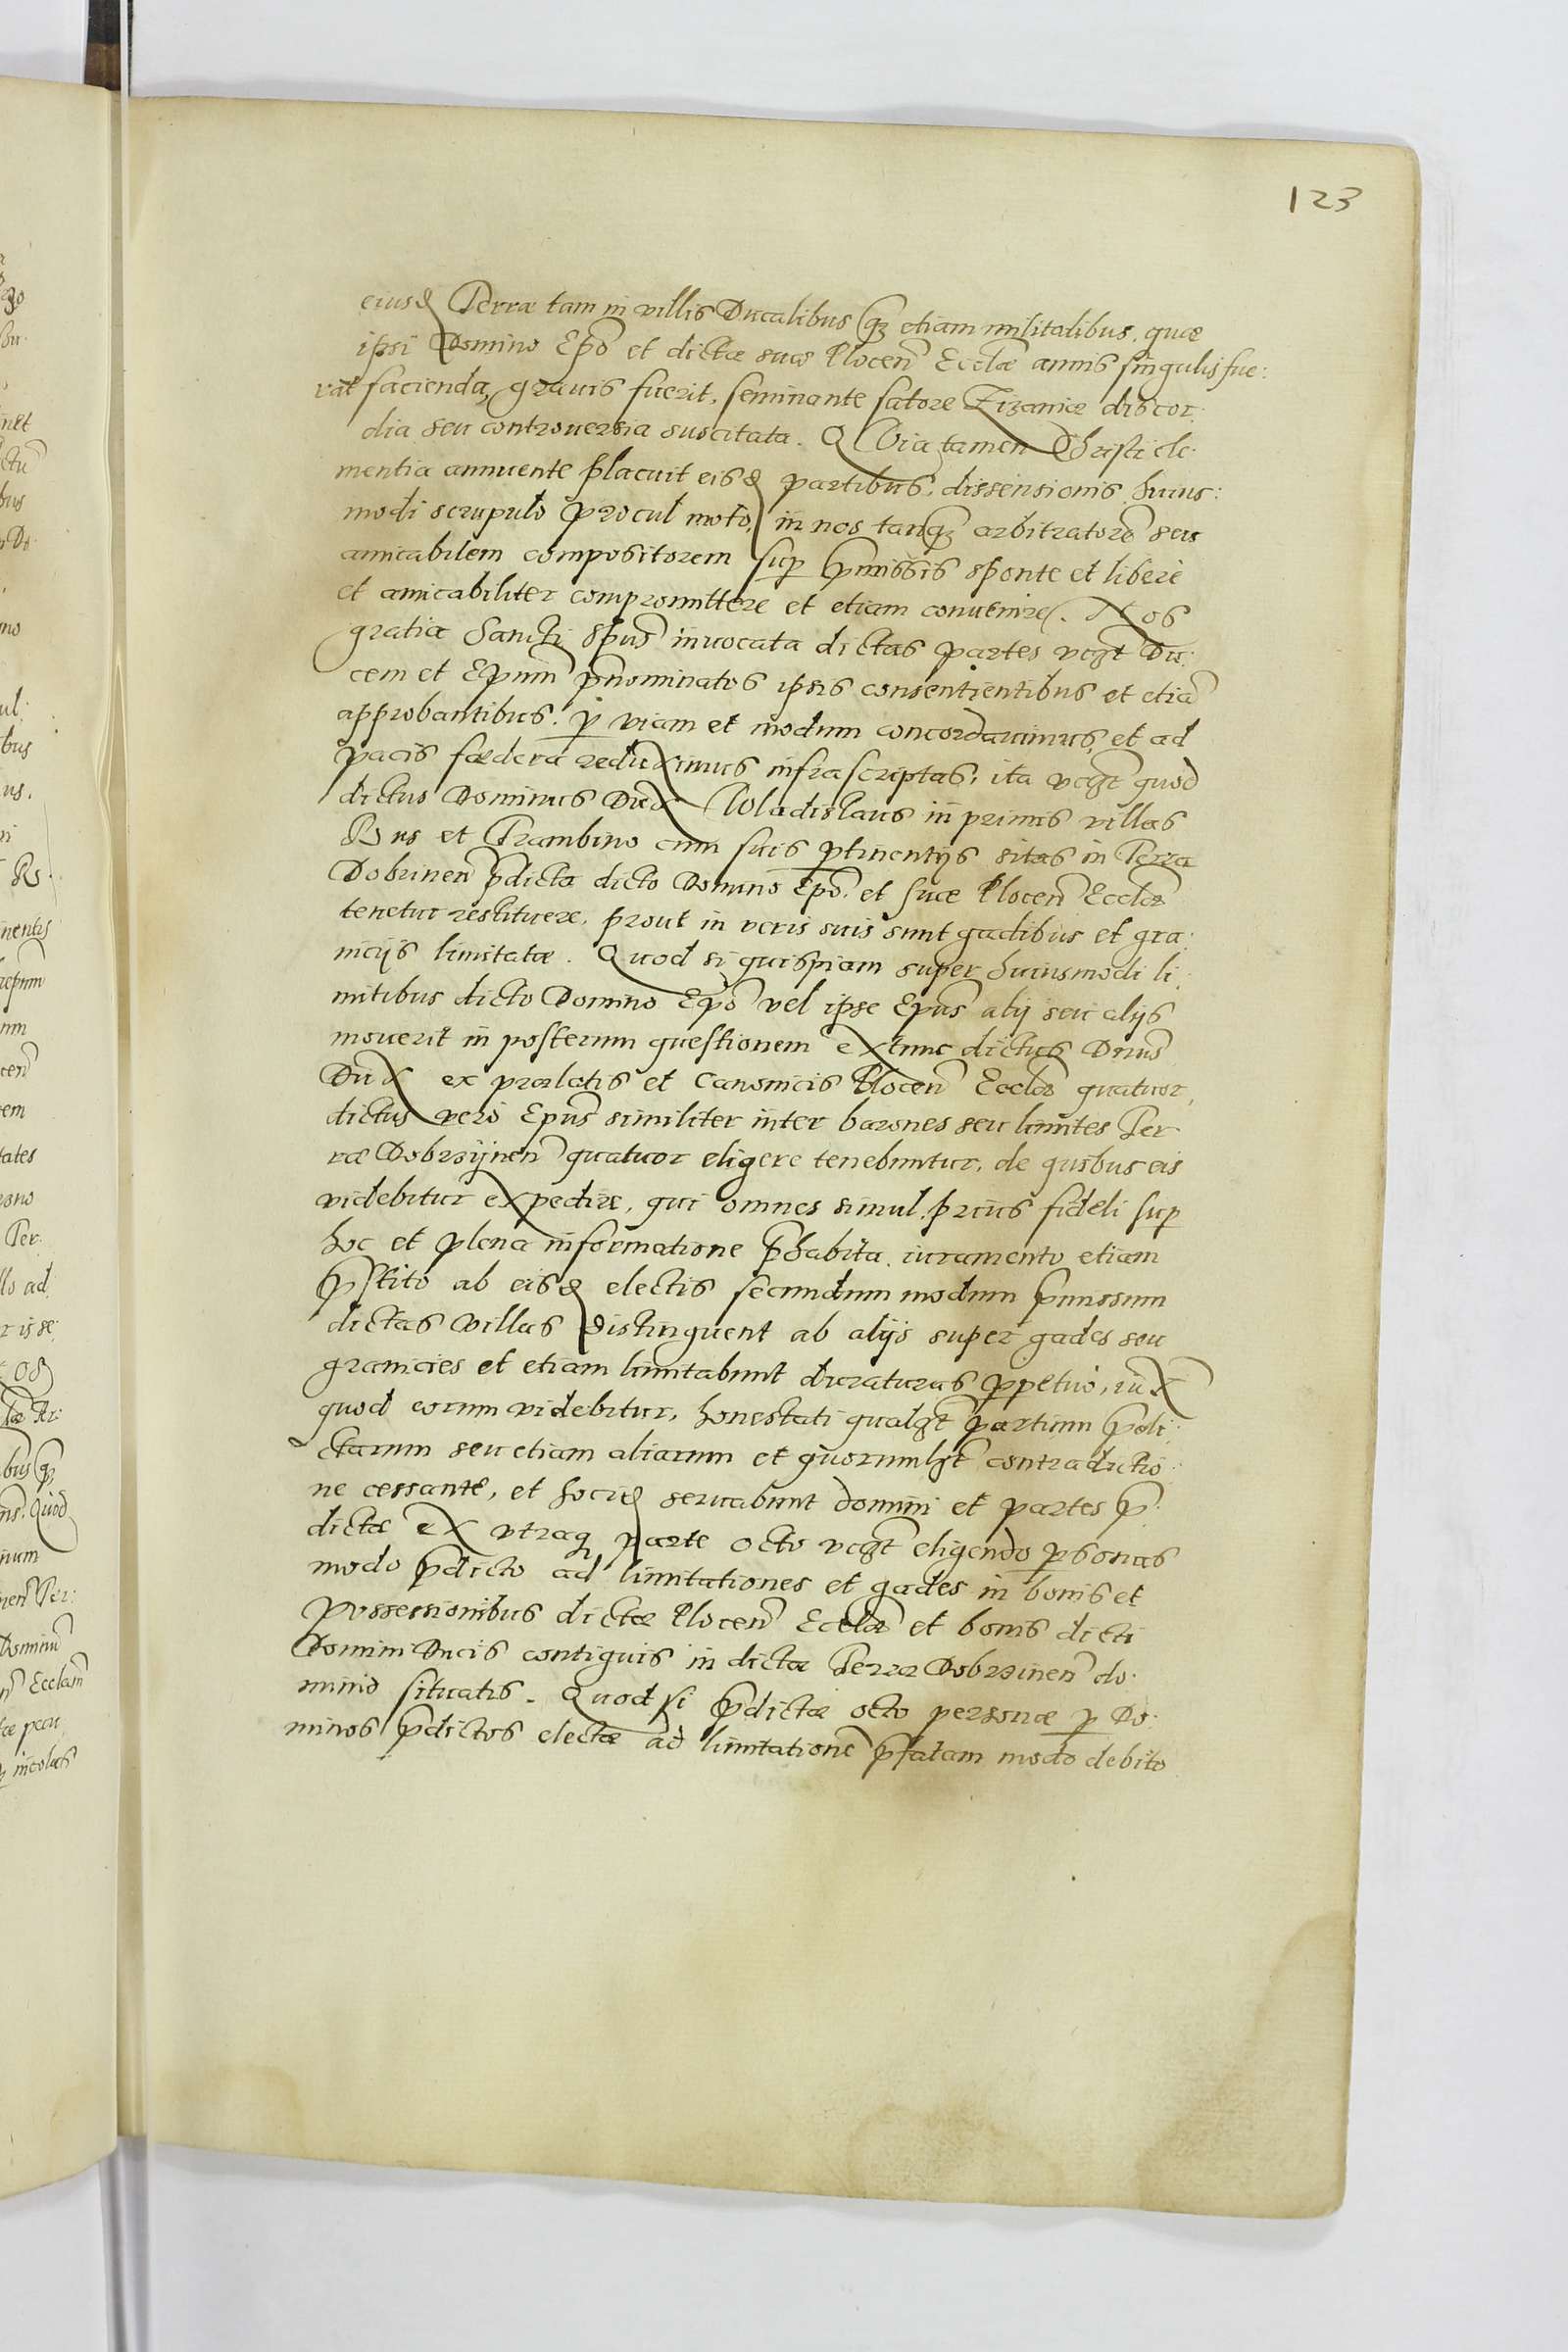 123
eiusd Terræ tam in villis Ducalibus qz etiam militalibus, quæ
ipsi Domino Epo et dictæ suæ Plocen Ecclæ annis singulis fue:
rat facienda, gravis fuerit, seminante satore Zizaniæ discor:
dia seu controversia suscitata. Quia tamen Christi cle:
mentia annuente placuit eisd partibus, dissensionis huius:
modi scrupulo procul moto, in nos tanqz arbitratore seu
amicabilem compositorem sup pmissis sponte et liberè
et amicabiliter compromittere et etiam convenire. Nos
gratia Sancti Spus invocata dictas partes vczt Du:
cem et Epum pnominatos ipsis consentientibus et etia
approbantibus. p viam et modum concordavimus, et ad
pacis fædera reduximus infrascriptas, ita vczt quod
dictus Dominus Dux Wladislaus in primis villas
Rus et Trambino cum suis ptinentijs sitas in Terra
Dobrinen pdicta dicto Domino Epo. et suæ Plocen Ecclæ
tenetur restituere, prout in veris suis sunt gadibus et gra:
nicijs limitatæ. Quod si quispiam super huiusmodi li:
mitibus dicto Domino Epo vel ipse Epus alij seu alijs
moverit in posterum questionem extunc dictus Dnus
Dux ex prælatis et Canonicis Plocen Ecclæ quatuor,
dictus verò Epus similiter inter barones seu limites Ter
ræ Dobrzÿnen quatuor eligere tenebuntur, de quibus eis
videbitur expedire, qui omnes simul, prius fideli sup
hoc et plena informatione phabita, iuramento etiam
pstito ab eisd electis secundum modum pmissum
dictas villas distinguent ab alijs super gades seu
granicies et etiam limitabunt duraturas ppetuò, iux
quod eorum videbitur, honestati qualzt partium pdi:
ctarum seu etiam aliarum et quorumlzt contradictio:
ne cessante, et hocid servabunt domini et partes p:
dictæ ex utraq parte octo vczt eligendo psonas
modo pdicto ad limitationes et gades in bonis et
possessionibus dictæ Plocen Ecclæ et bonis dicti
Domini Ducis contiguis in dicta Terra Dobrzinen do:
minio situatis. Quod si pdictæ octo personæ p Do:
minos pdictos electæ ad limitatione pfatam modo debito